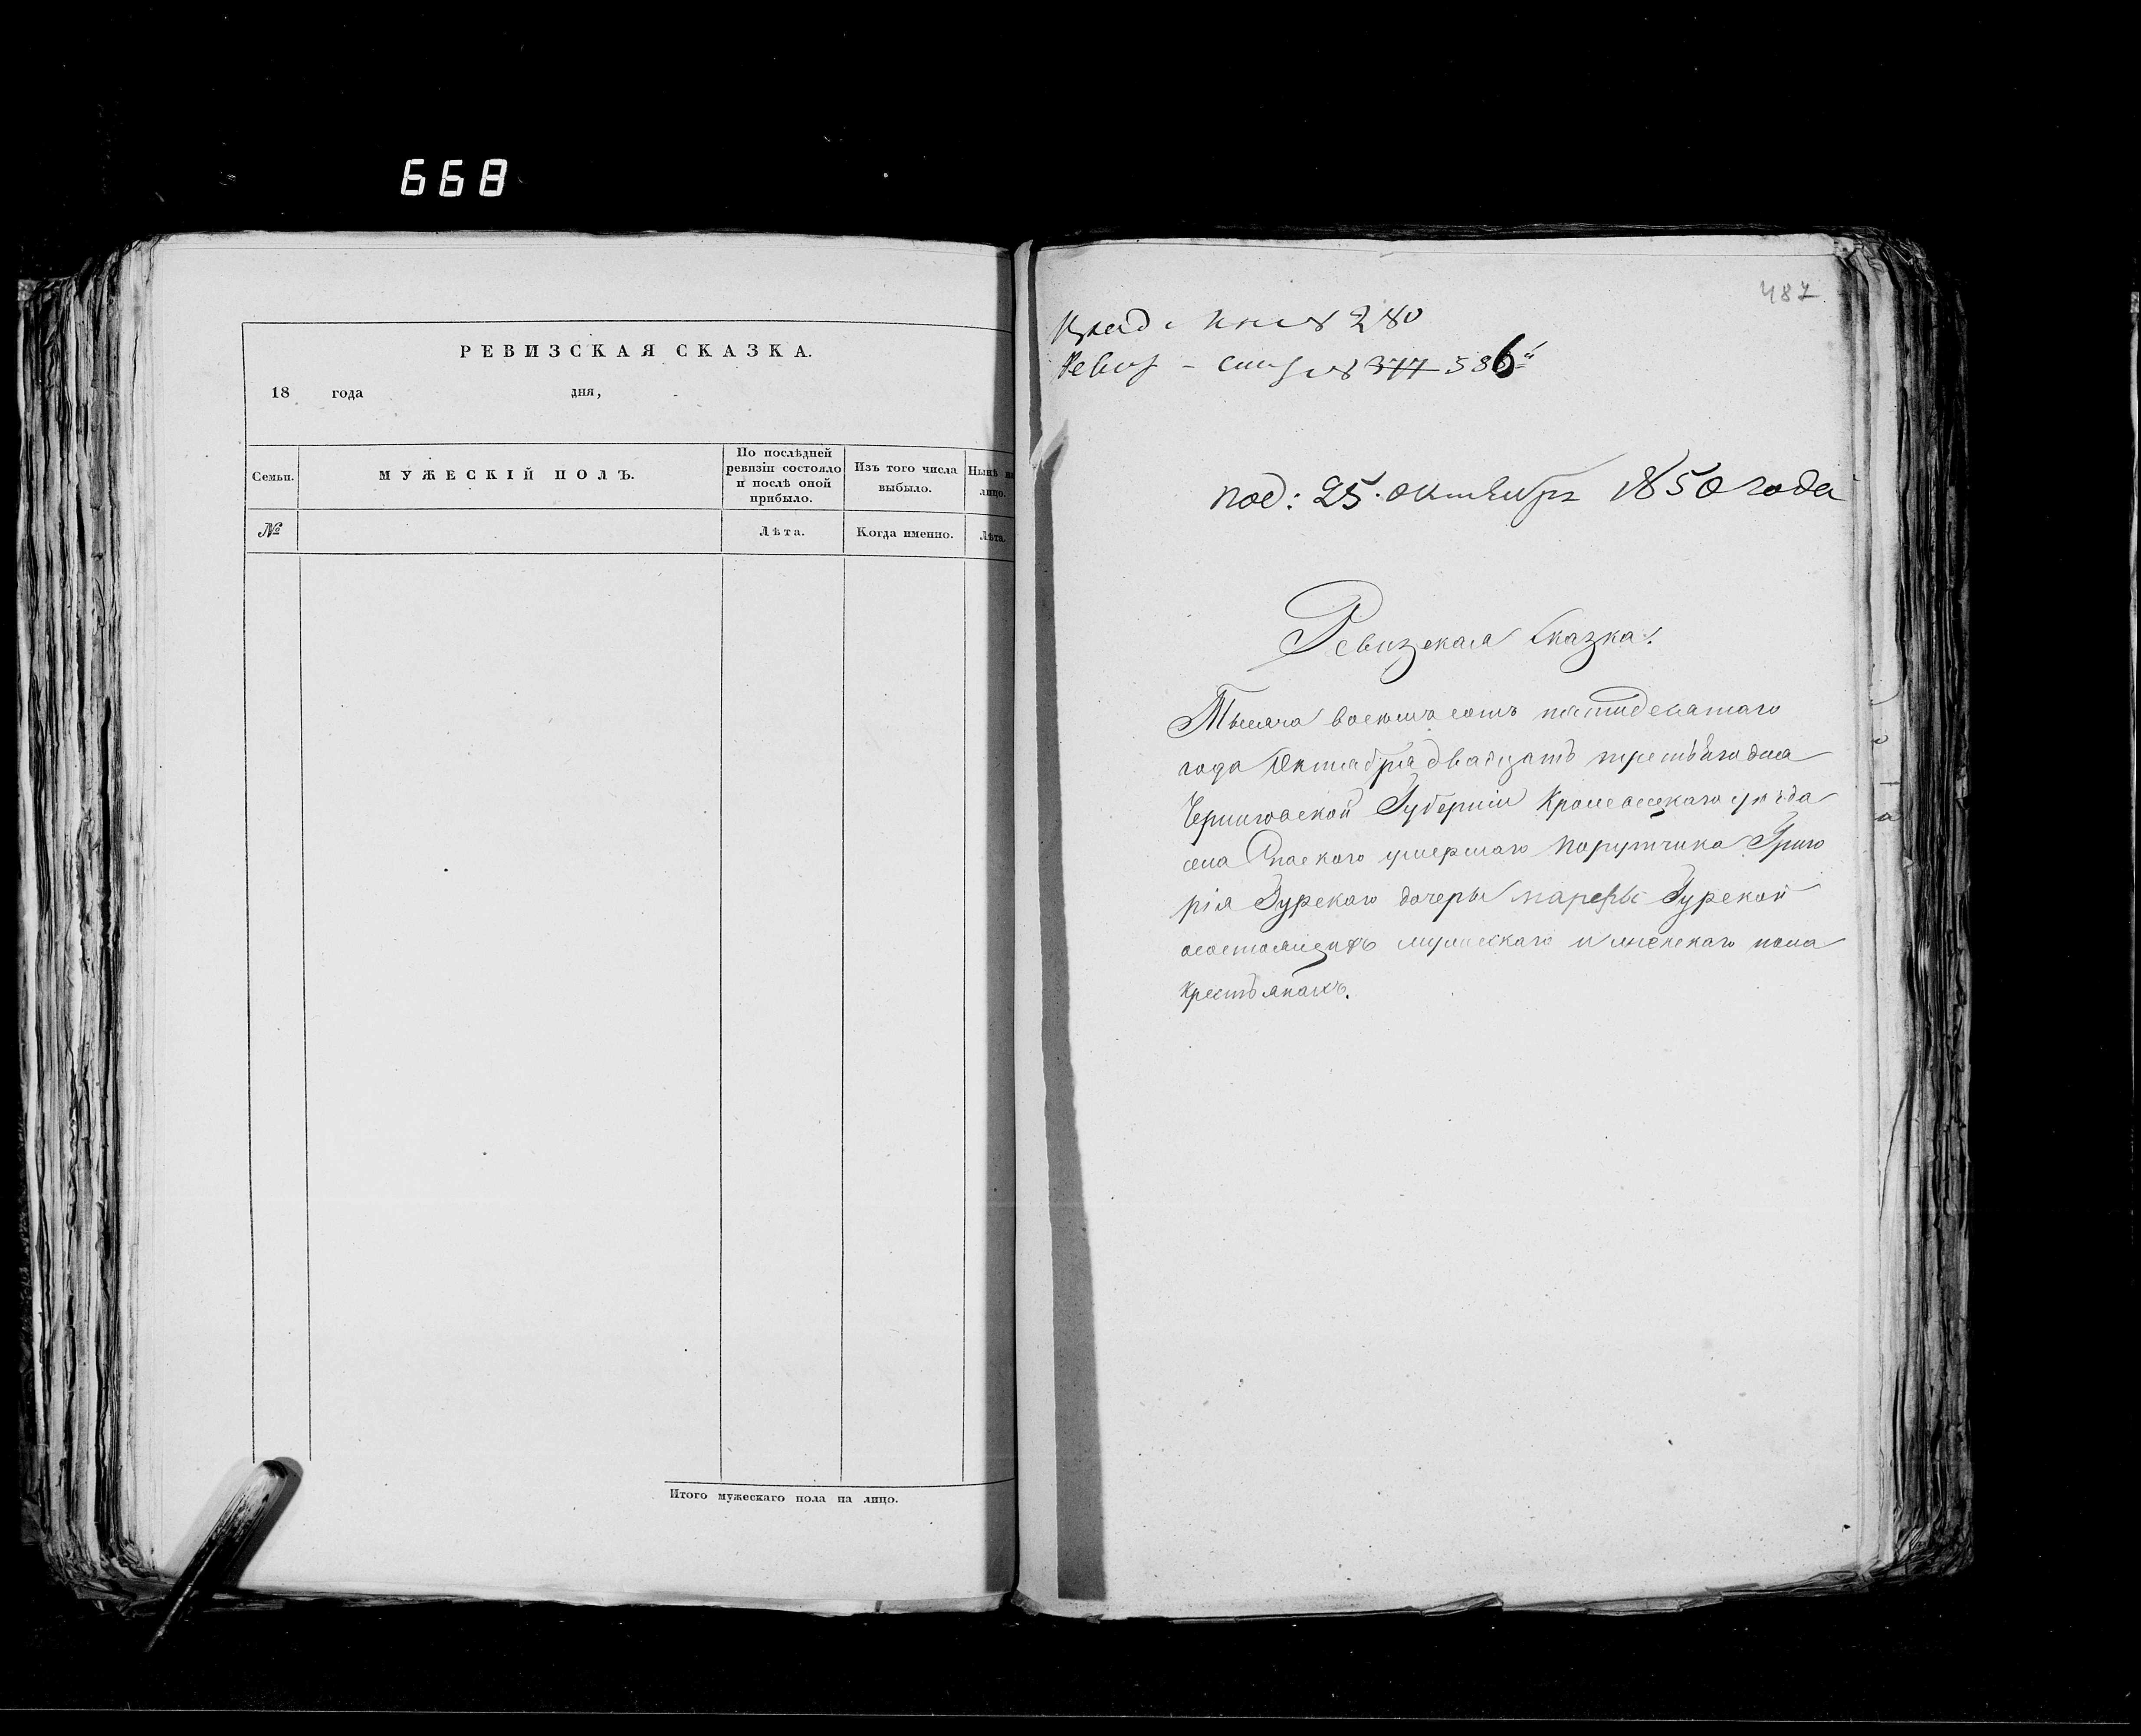 668
РЕВИЗСКАЯ СКАЗКА.
18 года дня,
Семьи.
МУЖЕСКІЙ ПОЛЪ.
По послѣдней
ревизіи состояло
и послѣ оной
прибыло.
Изъ того числа
выбыло.
Нынѣ на
лицо.
№
Лѣта.
Когда именно.
Лѣта.
Итого мужескаго пола на лицо.
487
280
Ревиз - 377 586
под: 25. октября 1850 года
Ревизская Сказка.
Тысяча восемь сотъ пятидесятаго
года Октября двадцать третьяго дня
Черниговской Губерніи Кролевецкаго уѣзда
села Спаского умершаго порутчика Григо
рія Гурскаго дочеры Марфы Гурской
осостоящихъ мужескаго и женскаго пола
крестьянахъ.